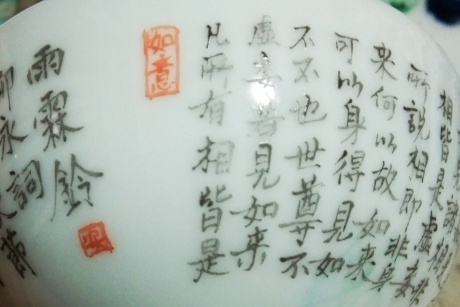 相皆是虛
所說相即非
來何以故如來身
可以身得見如
不不也世尊不
虛妄若見如來
凡所有相皆是
如意
雨霖鈴
柳永詞